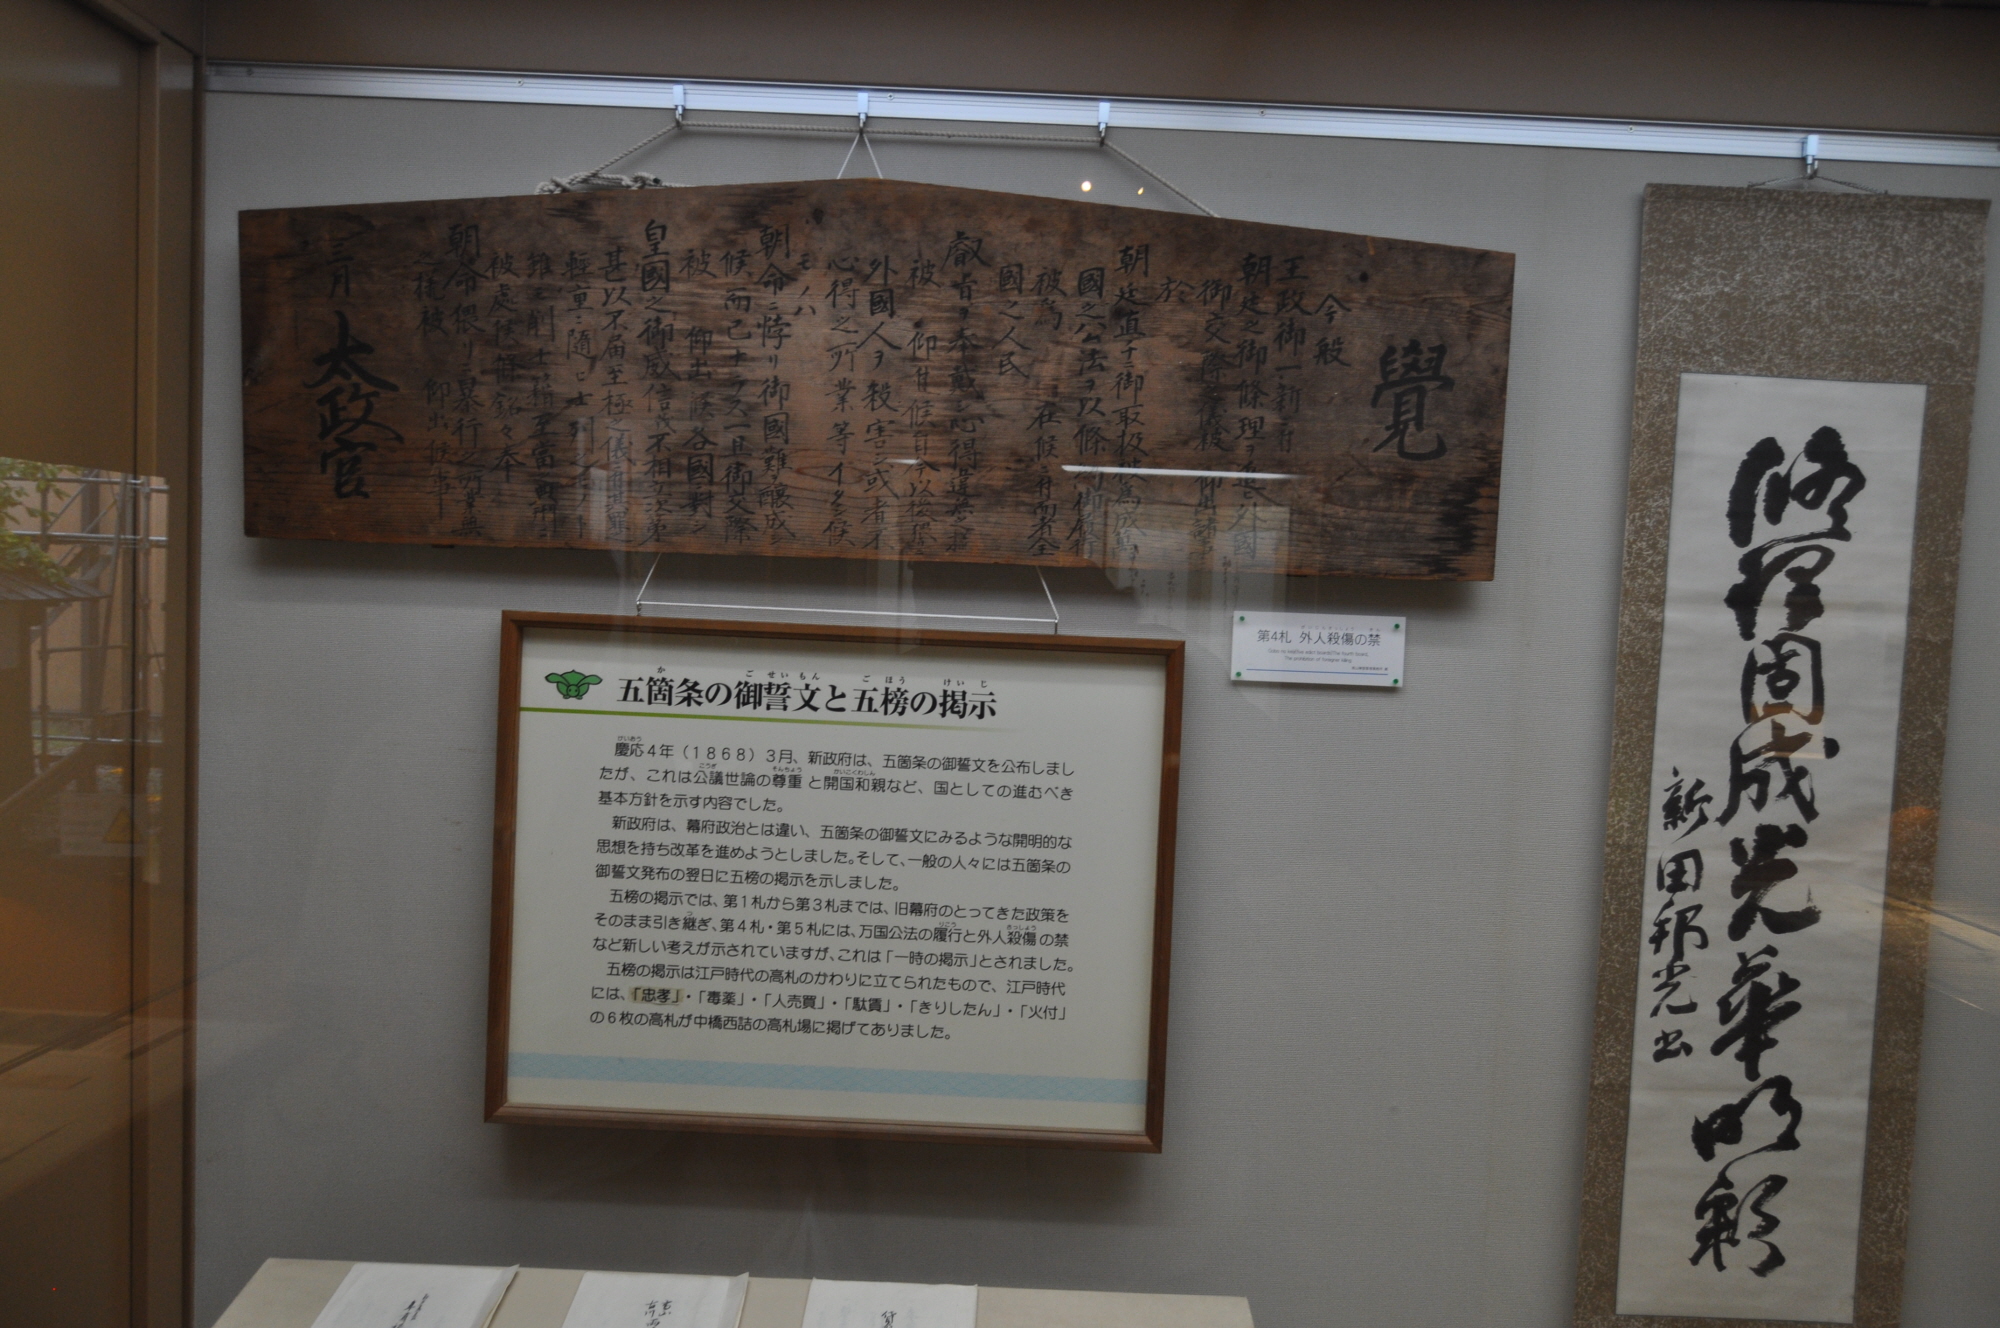 覺
今般
王政御一新ニ付
朝廷之御條理ヲ追ヒ外國
御交際之儀被 仰出諸事
於
朝廷直チニ御取扱被為成萬
國之公法ヲ以條約御履行
被為 在候ニ付而者全
國之人民
叡旨ヲ奉戴シ心得違無之様
被 仰付候自今以後猥リニ
外國人ヲ殺害シ或者不
心得之所業等イタシ候
モノハ
朝命ニ悖リ御國難ヲ醸成シ
候而已ナラス一旦御交際
被 仰出候各國ニ對シ
皇國之御威信モ不相立次第
甚以不届至極之儀ニ付其罪ノ
輕重ニ随ヒ士列ノモノト
雖モ削士籍至當ノ典刑ニ
被處候條銘々奉
朝命猥リニ暴行之所業無
之様被 仰出候事
三月
太政官
第4札 外人殺傷の禁
五箇条の御誓文と五榜の掲示
慶応4年(1868)3月、新政府は、五箇条の御誓文を公布しまし
たが、これは公議世論の尊重と開国和親など、国としての進むべき
基本方針を示す内容でした。
新政府は、幕府政治とは違い、五箇条の御誓文にみるような開明的な
思想を持ち改革を進めようとしました。そして、一般の人々には五箇条の
御誓文発布の翌日に五榜の掲示を示しました。
五榜の掲示では、第1札から第3札までは、旧幕府のとってきた政策を
そのまま引き継ぎ、第4札・第5札には、万国公法の履行と外人殺傷の禁
など新しい考えが示されていますが、これは「一時の掲示」とされました。
五榜の掲示は江戸時代の高札のかわりに立てられたもので、江戸時代
には、「忠孝」・「毒薬」・「人売買」・「駄賃」・「きりしたん」・「火付」
の6枚の高札が中橋西詰の高札場に掲げてありました。
修理固成光華明彩
新田邦光書